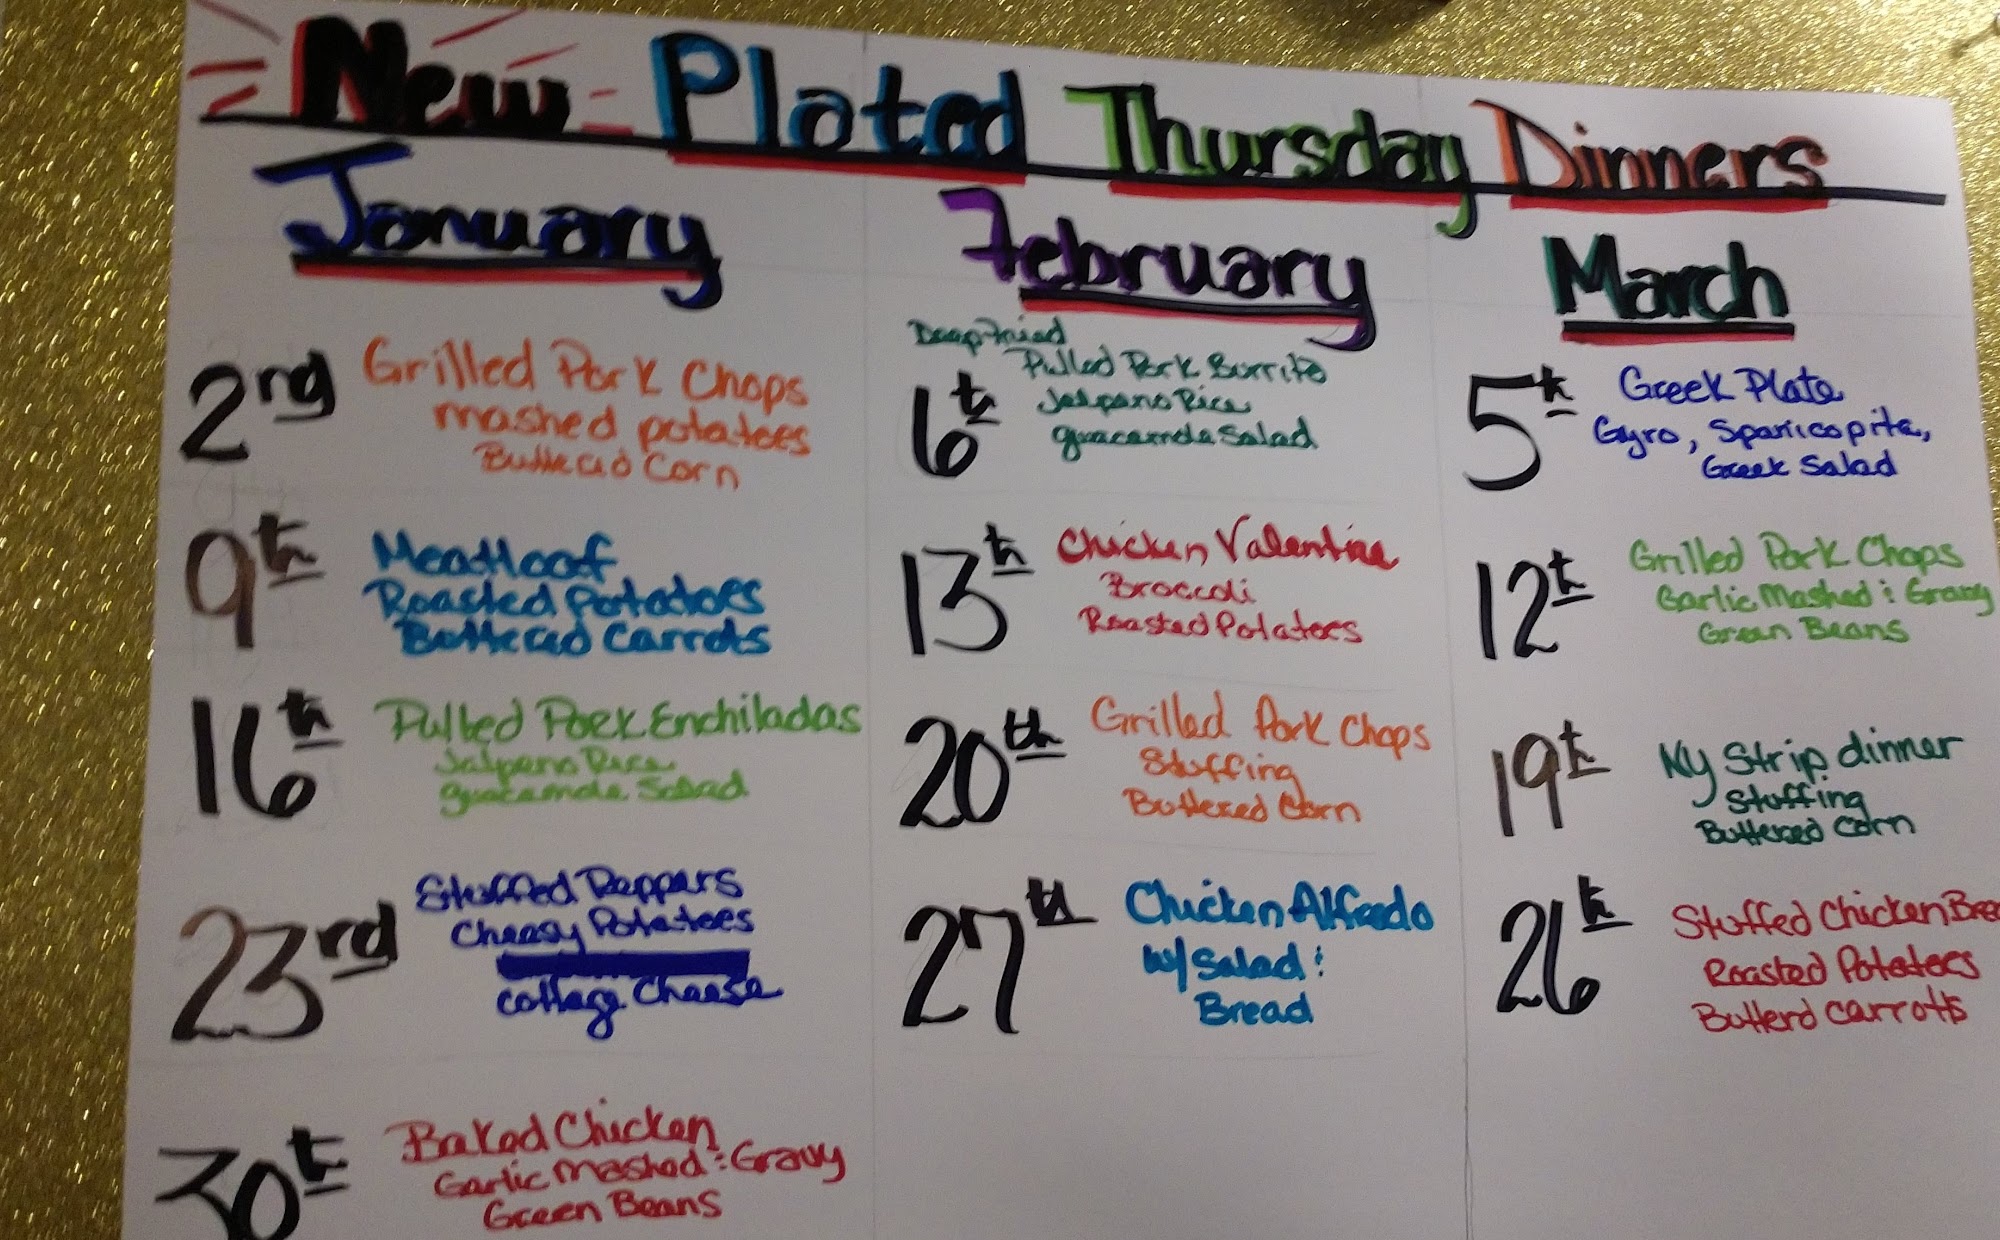 New - Plated Thursday Dinners
January
2nd Grilled Pork Chops
mashed potatoes
Buttered Corn
9th Meatloaf
Roasted Potatoes
Buttered Carrots
16th Pulled Pork Enchiladas
Jalpeno Rice
guacamole Salad
23rd Stuffed Peppers
Cheesy Potatoes
Cottage Cheese
30th Baked Chicken
Garlic Mashed & Gravy
Green Beans
February
Deep Fried
Pulled Pork Burrito
6th Jalpeno Rice
guacamole Salad
13th Chicken Valentine
Broccoli
Roasted Potatoes
20th Grilled Pork Chops
Stuffing
Buttered Corn
27th Chicken Alfredo
w/ Salad &
Bread
March
5th Greek Plate
Gyro, Spanicopita,
Greek Salad
12th Grilled Pork Chops
Garlic Mashed & Gravy
Green Beans
19th NY Strip dinner
Stuffing
Buttered Corn
26th Stuffed Chicken Brea
Roasted Potatoes
Butterd carrotts